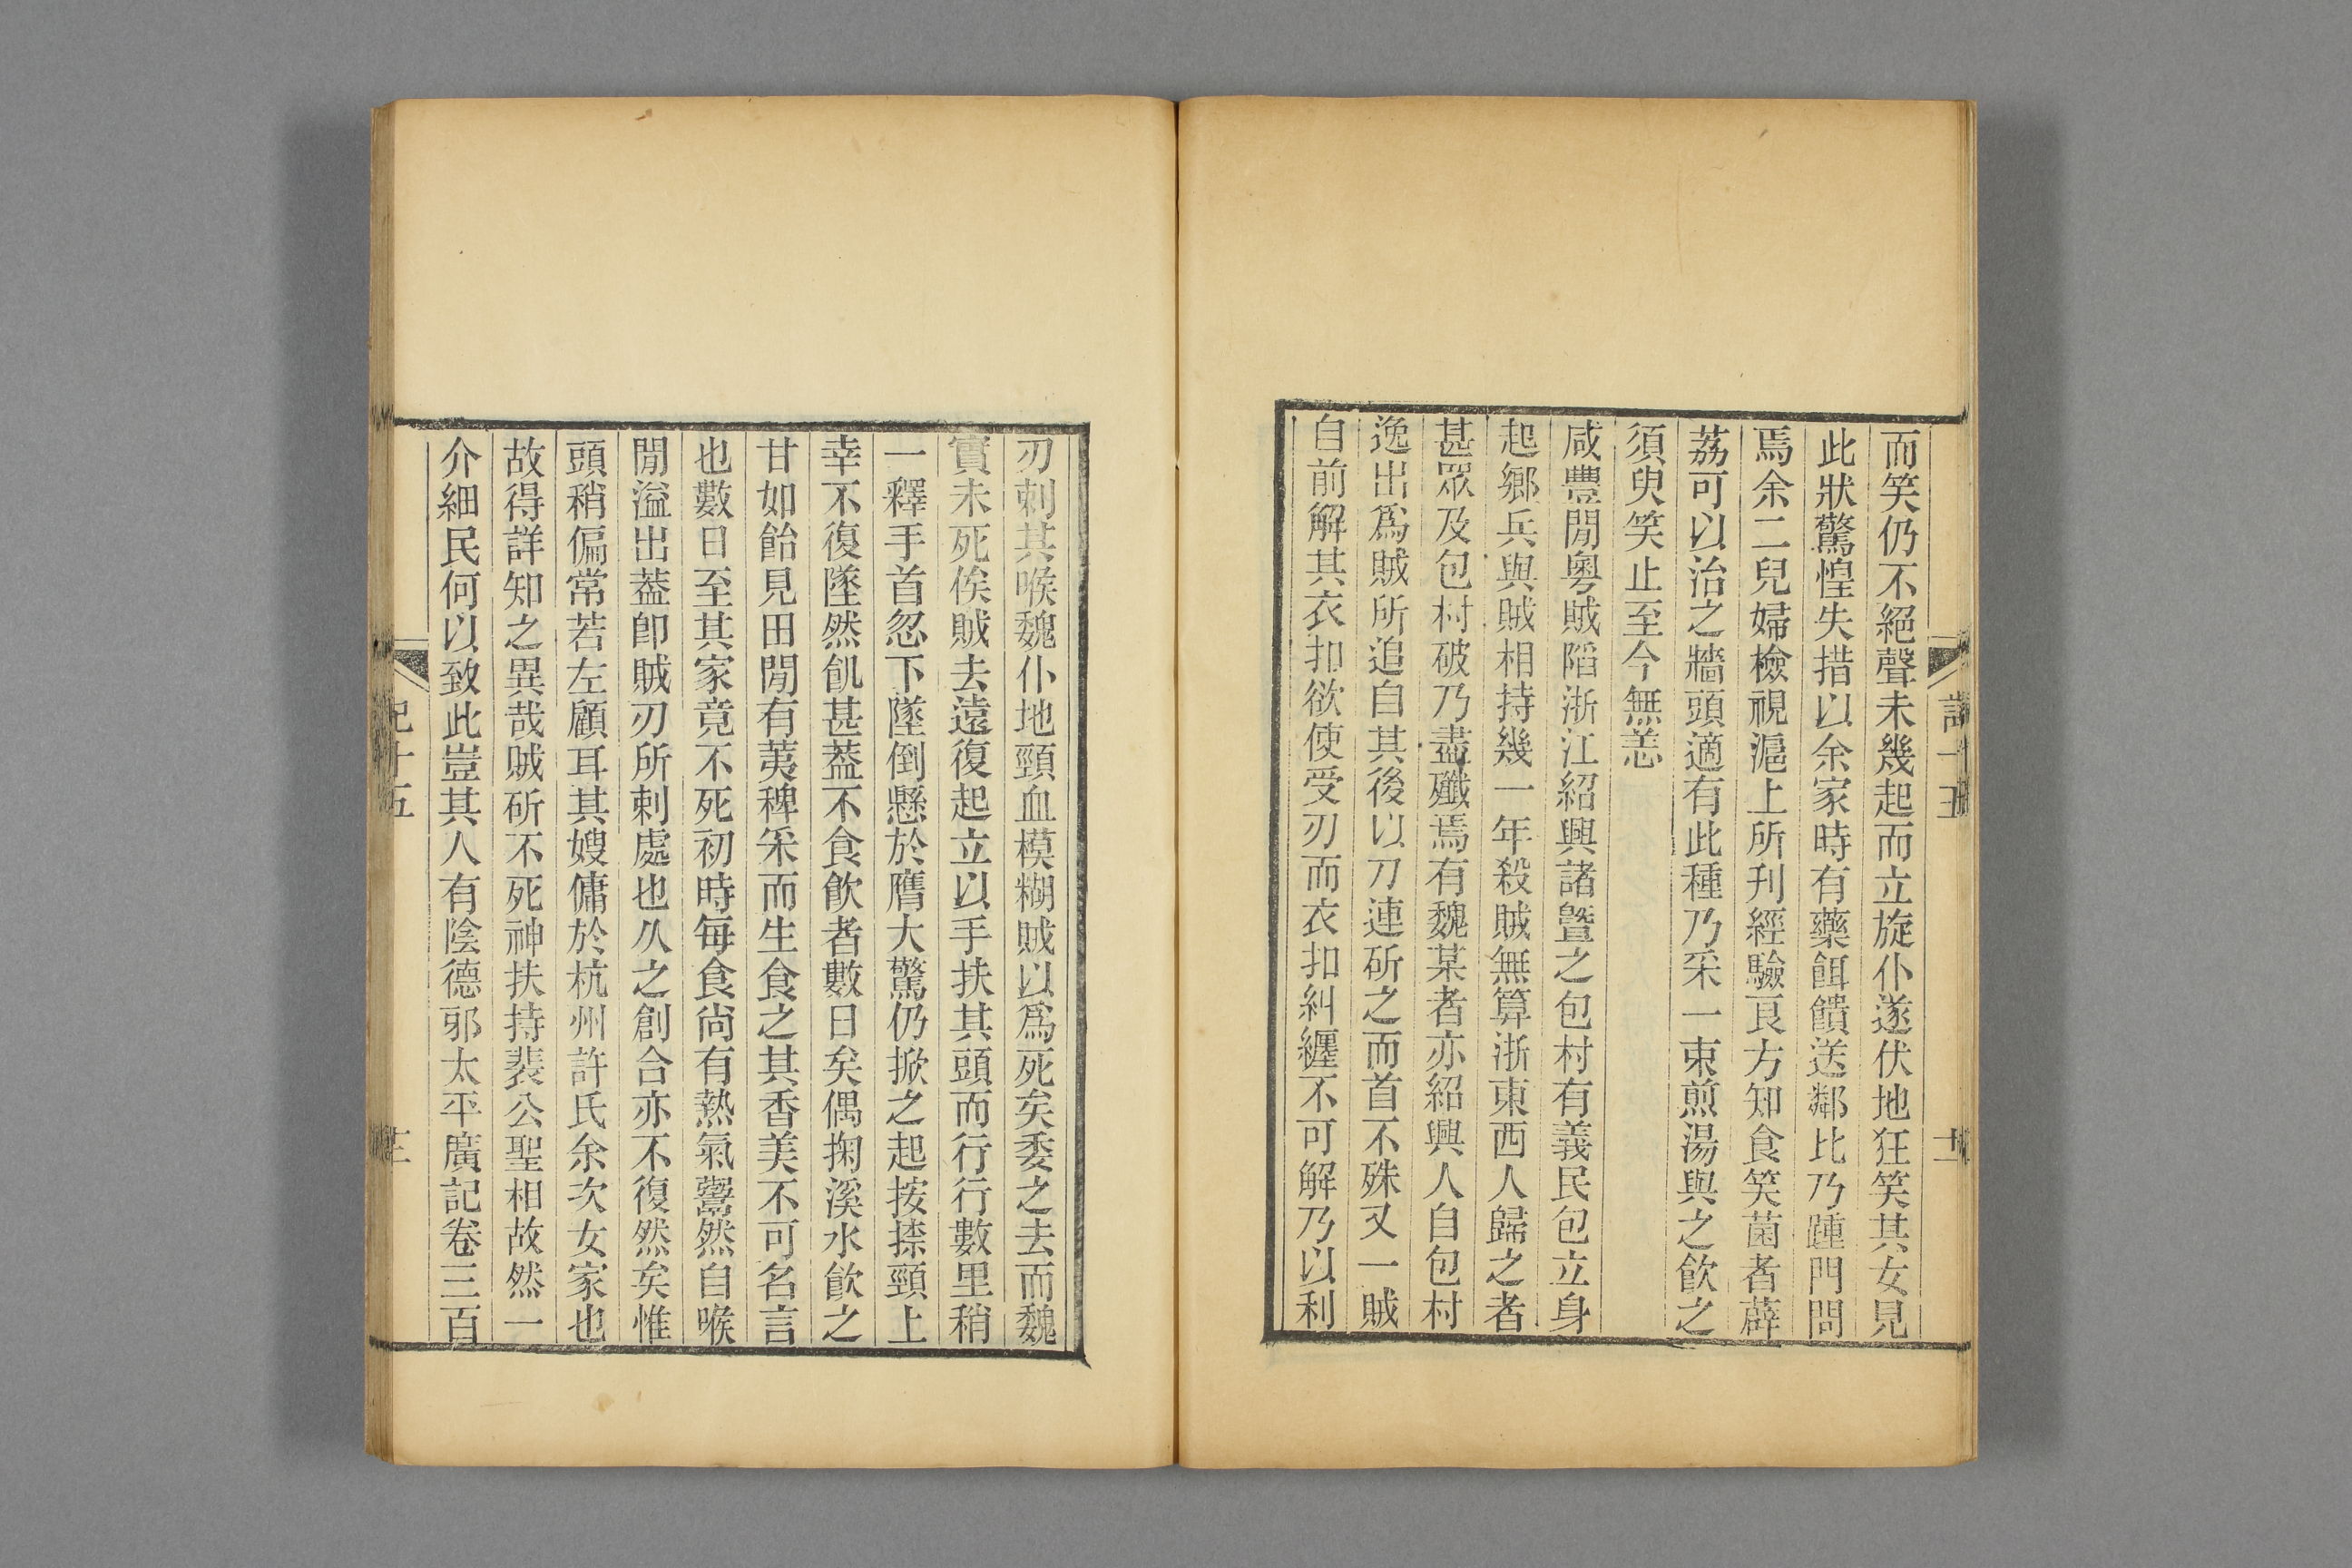 而笑仍不絕聲未幾起而立旋仆遂伏地狂笑其女見
此狀驚惶失措以余家時有藥餌饋送鄰比乃踵門問
焉余二兒婦檢視滬上所刊經驗良方知食笑菌者薜
荔可以治之牆頭適有此種乃采一束煎湯與之飲之
須臾笑止至今無恙
咸豐閒粵賊陷浙江紹興諸暨之包村有義民包立身
起鄉兵與賊相持幾一年殺賊無算浙東西人歸之者
甚眾及包村破乃盡殲焉有魏某者亦紹興人自包村
逸出爲賊所追自其後以刀連斫之而首不殊又一賊
自前解其衣扣欲使受刃而衣扣糾纏不可解乃以利
刃刺其喉魏仆地頸血模糊賊以爲死矣委之去而魏
實未死俟賊去遠復起立以手扶其頭而行行數里稍
一釋手首忽下墜倒懸於膺大驚仍掀之起按捺頸上
幸不復墜然飢甚葢不食飲者數日矣偶掬溪水飲之
甘如飴見田閒有荑稗采而生食之其香美不可名言
也數日至其家竟不死初時每食尚有熱氣鬵然自喉
閒溢出葢卽賊刃所刺處也久之創合亦不復然矣惟
頭稍偏常若左顧耳其嫂傭於杭州許氏余次女家也
故得詳知之異哉賊斫不死神扶持裴公聖相故然一
介細民何以致此豈其人有陰德邪太平廣記卷三百